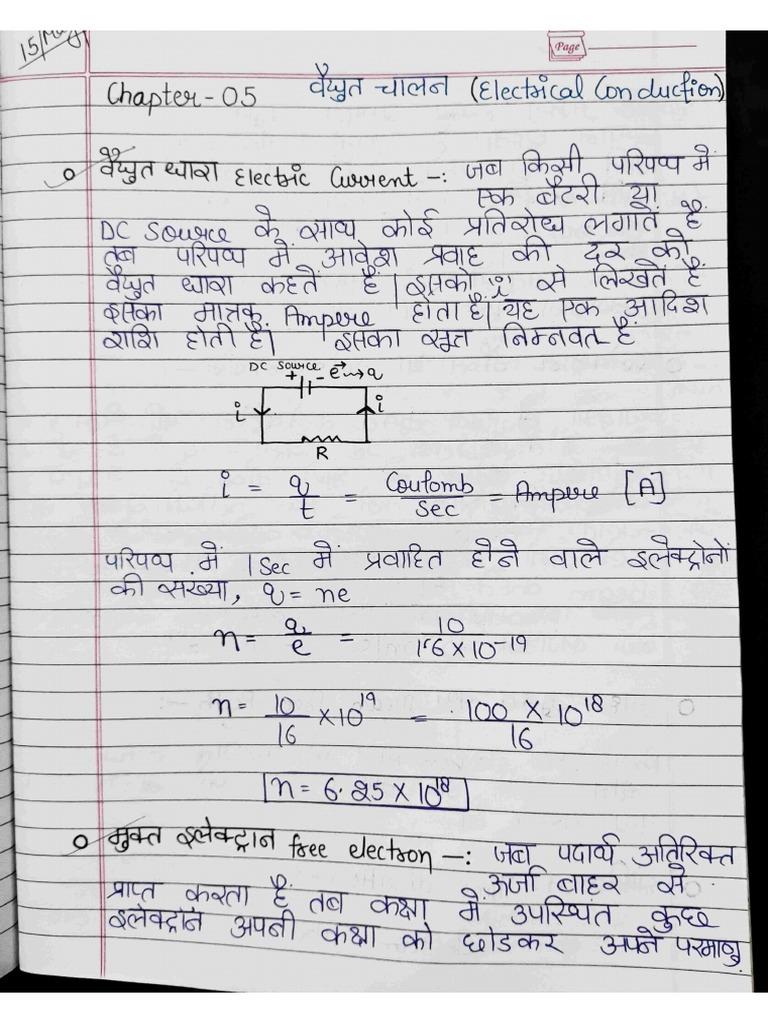 15/May
Page
Chapter-05 वैद्युत चालन (Electrical Conduction)
वैद्युत धारा Electric Current -: जब किसी परिपथ में
एक बैटरी या
DC Source के साथ कोई प्रतिरोध लगाते है
तब परिपथ में आवेश प्रवाह की दर को
वैद्युत धारा कहते हैं| इसको i से लिखते है
इसका मात्रक Ampere होता है| यह एक आदिश
राशि होती है| इसका सूत्र निम्नवत है
DC Source
+ - e→q
i i
R
i = q/t = Coulomb/Sec = Ampere [A]
परिपथ में 1 Sec में प्रवाहित होने वाले इलेक्ट्रोनों
की सख्या, q = ne
n = q/e = 10/1.6×10⁻¹⁹
n = 10/16 ×10¹⁹ = 100 × 10¹⁸/16
n = 6.25 × 10¹⁸
मुक्त इलेक्ट्रान free electron -: जब पदार्थ अतिरिक्त
अर्जा बाहर से
प्राप्त करता है तब कक्षा में उपस्थित कुछ
इलेक्ट्रान अपनी कक्षा को छोडकर अपने परमाणु